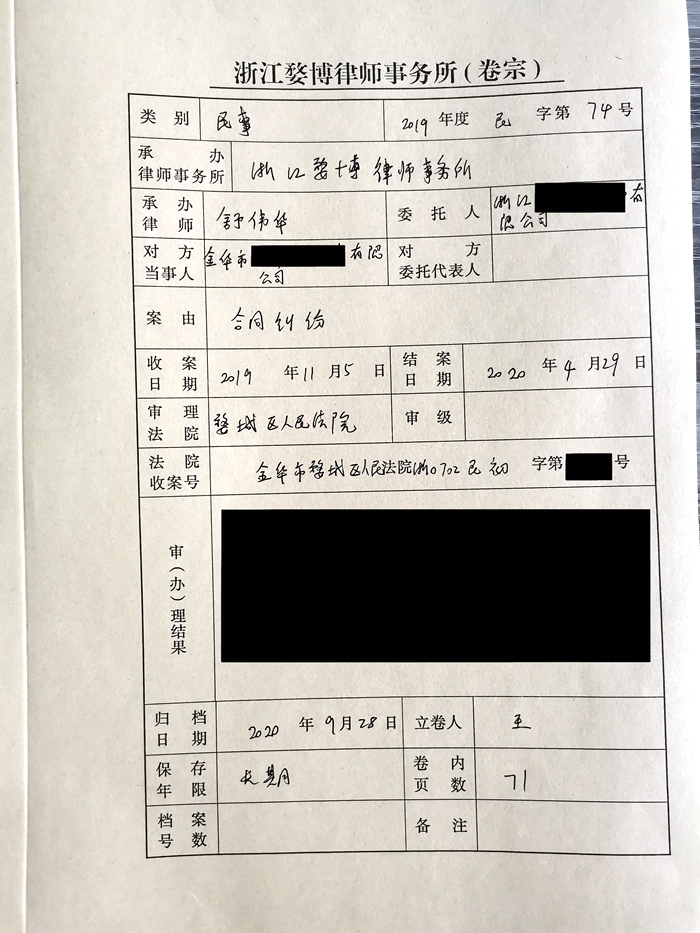 浙江婺博律师事务所(卷宗)
类别 民事 2019 年度 民 字第 74 号
承办律师事务所 浙江婺博律师事务所
承办律师 舒伟华 委托人 浙江 有限公司
对方当事人 金华市 有限公司 对方委托代表人
案由 合同纠纷
收案日期 2019 年 11 月 5 日 结案日期 2020 年 4 月 29 日
审理法院 婺城区人民法院 审级
法院收案号 金华市婺城区人民法院浙0702民初 字第 号
审(办)理结果
归档日期 2020 年 9 月 28 日 立卷人 王
保存年限 长期 卷内页数 71
档案号数 备注